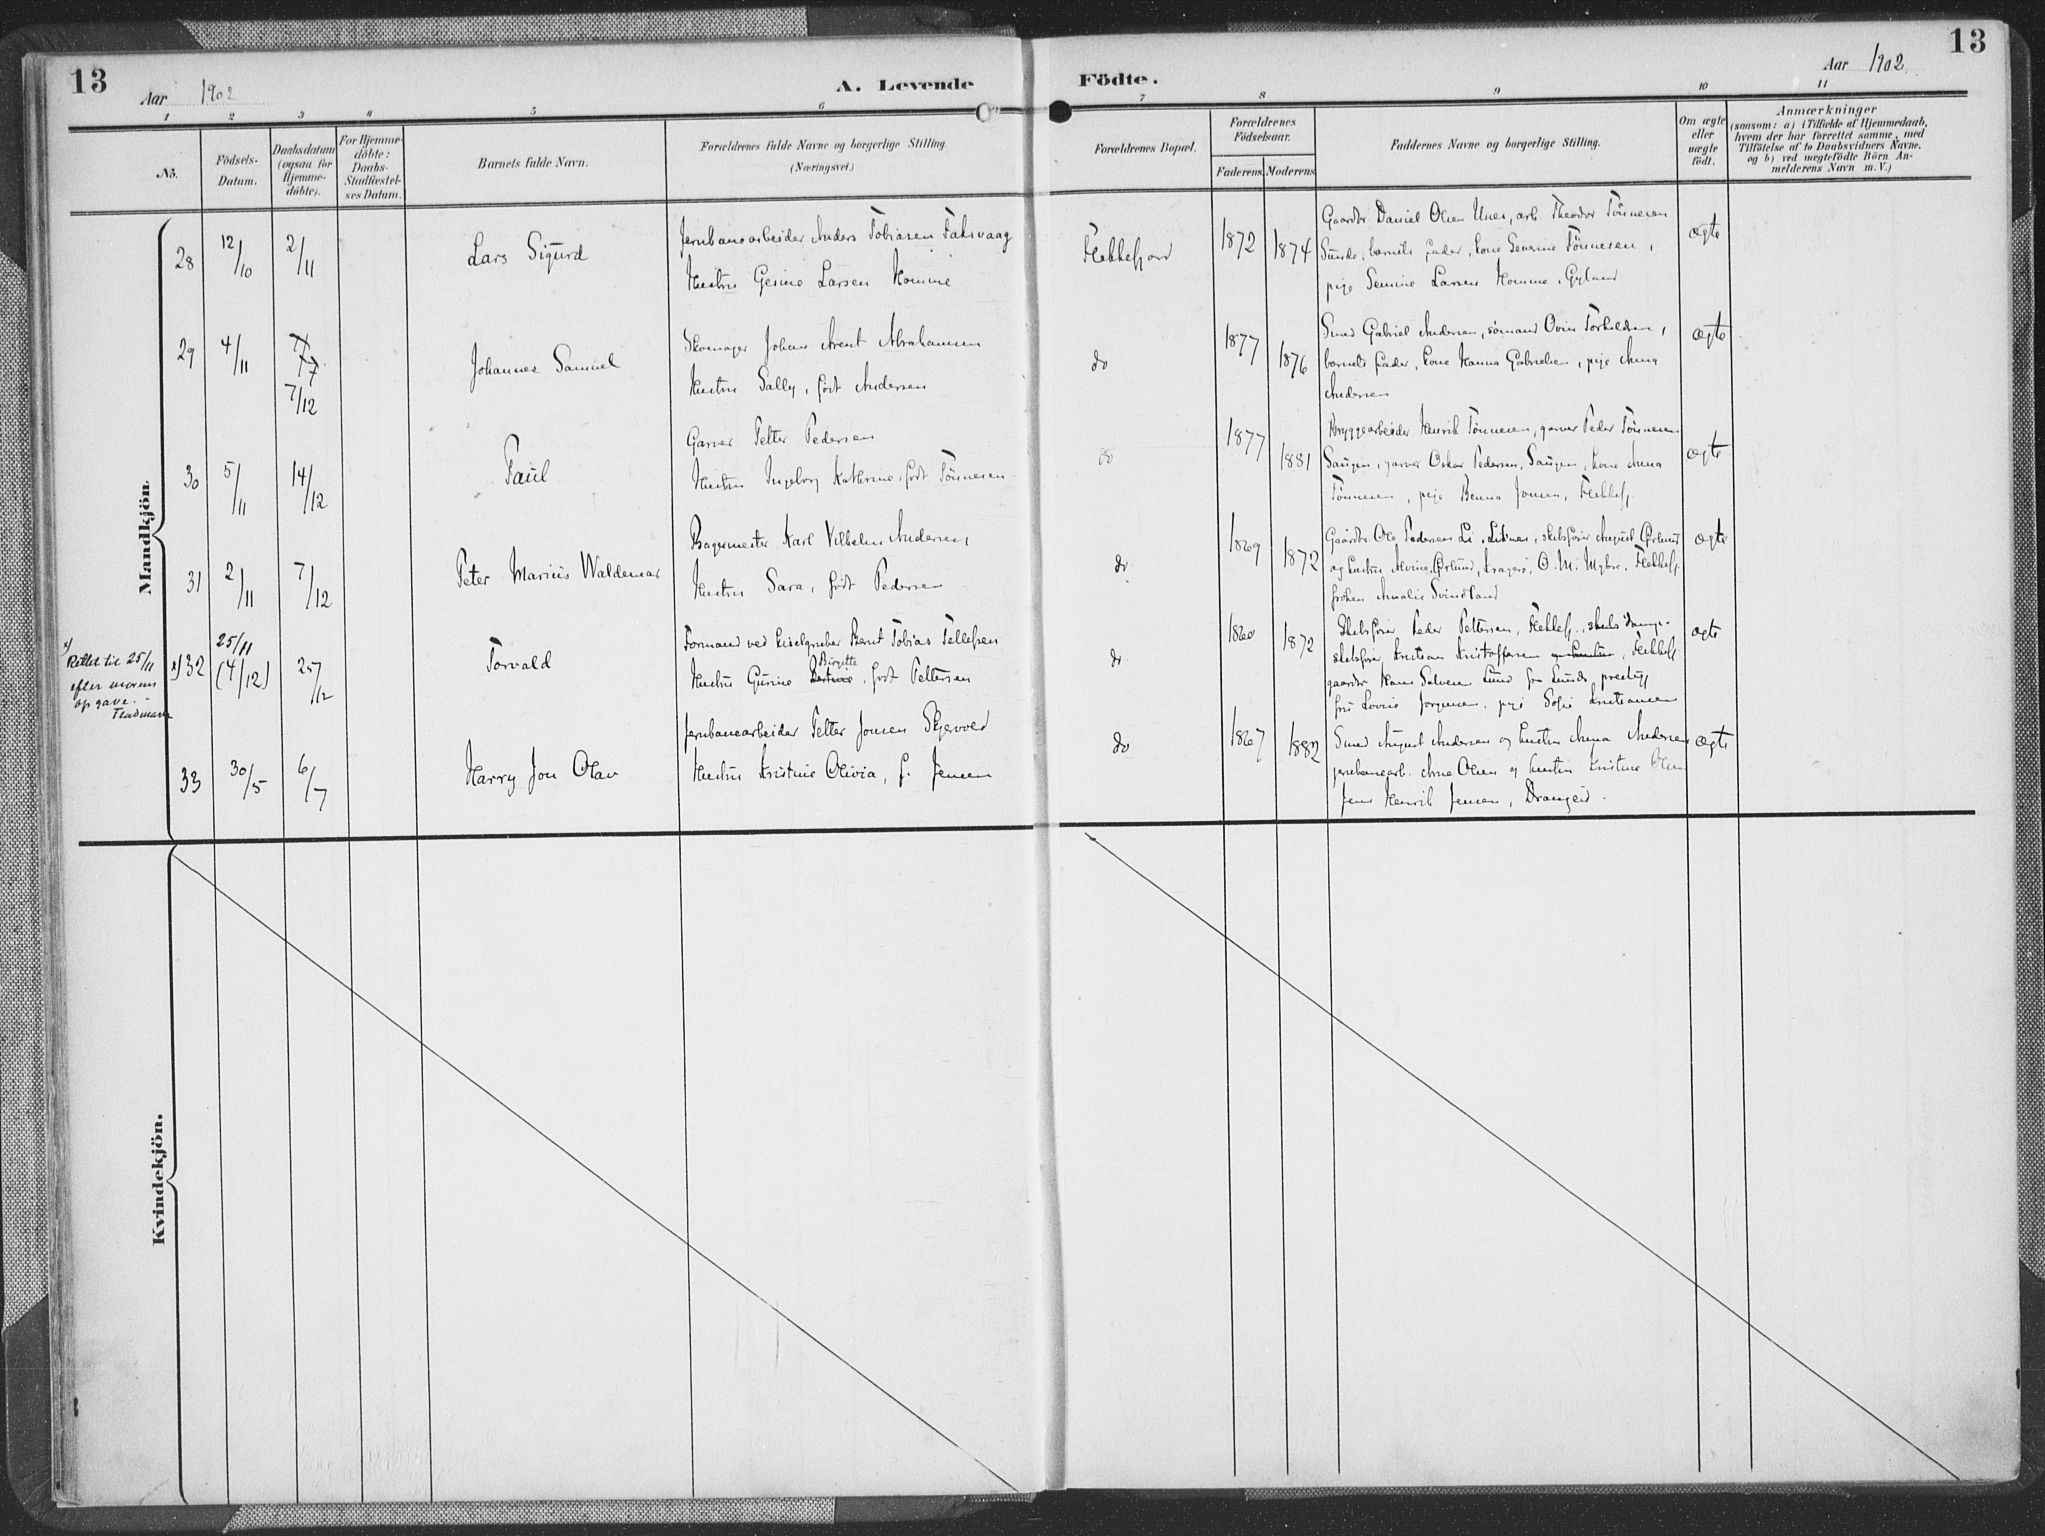 13
Aar 1902
A. Levende
Födte.
Aar 1902
13
1 2 3 4 5 6 7 8 9 10 11
No.
Födsels-
Datum.
Daabsdatum
(ogsaa for
Hjemme-
döbte).
For Hjemme-
döbte:
Daabs-
Stadfæstel-
ses Datum.
Barnets fulde Navn.
Forældrenes fulde Navne og borgerlige Stilling.
(Næringsvei.)
Forældrenes Bopæl.
Forældrenes
Födselsaar.
Faderens. Moderens.
Faddernes Navne og borgerlige Stilling.
Om ægte
eller
uægte
födt.
Anmærkninger
(saasom: a) i Tilfælde af Hjemmedaab,
hvem der har forrettet samme, med
Tilföielse af to Daabsvidners Navne,
og b) ved uægtefödte Börn An-
melderens Navn m. V.)
Mandkjön.
28 12/10 2/11 Lars Sigurd
Jernbanearbeider Anders Tobiasen Faksvaag
Hustru Gesine Larsen Homme
Flekkefjord 1872 1874
Gaardbr. Daniel Olsen Unes, arb. Theodor Tönnesen
Sunde, barnets fader, kone Severine Tönnesen,
pige Semine Larsen Homme, Gyland
ægte
29 4/11 7/12 Johannes Samuel
Skomager Johan Arent Abrahamsen
Hustru Sally, födt Andersen
do 1877 1876
Smed Gabriel Andersen, sömand Ovin Torkeldsen,
barnets fader, kone Hanna Gabrielsen, pige Anna
Andersen
ægte
30 5/11 14/12 Paul
Garver Petter Pedersen
Hustru Ingeborg Kathrine, födt Tönnesen
do 1877 1881
Bryggearbeider Henrik Tönnesen, garver Peder Tönnesen
Saugen, garver Oskar Pedersen, Saugen, kone Anna
Tönnesen, pige Benna Jonsen, Flekkefj.
ægte
31 2/11 7/12 Peter Marius Waldemar
Bagermester Karl Vilhelm Andersen,
Hustru Sara, födt Pedersen
do 1869 1872
Gaardbr. Ole Pedersen Li, skibsförer August Örlund
og hustru Alvine Örlund, Kragerö, O. M. Myhre, Flekkefj.
fröken Amalie Svindland
ægte
x) Rettet til 25/11
efter morens
opgave.
x) 32 25/11 (4/12) 25/12 Torvald
Formand ved Kiselgruber Bernt Tobias Tellefsen
Birgitte
Hustru Gurine Bertine, födt Pettersen
do 1860 1872
Skibsförer Peder Pettersen, Flekkefj., skibs damp-
skibsförer Kristian Kristoffersen og hustru, Flekkefj.
gaardbr. Hans Salvesen Lund fra Lunds prestegj
fru Lovise Jörgensen, pige Sofie Kristiansen
ægte
33 30/5 6/7 Harry Jon Olav
Jernbanearbeider Petter Jonsen Skjerved
Hustru Kristine Olivia, f. Jensen
do 1867 1882
Smed August Andersen og hustru Anna Andersen
jernbanearb. Arne Olsen og hustru Kristine Olsen
Jens Henrik Jensen, Drangeid.
ægte
Kvindekjön.